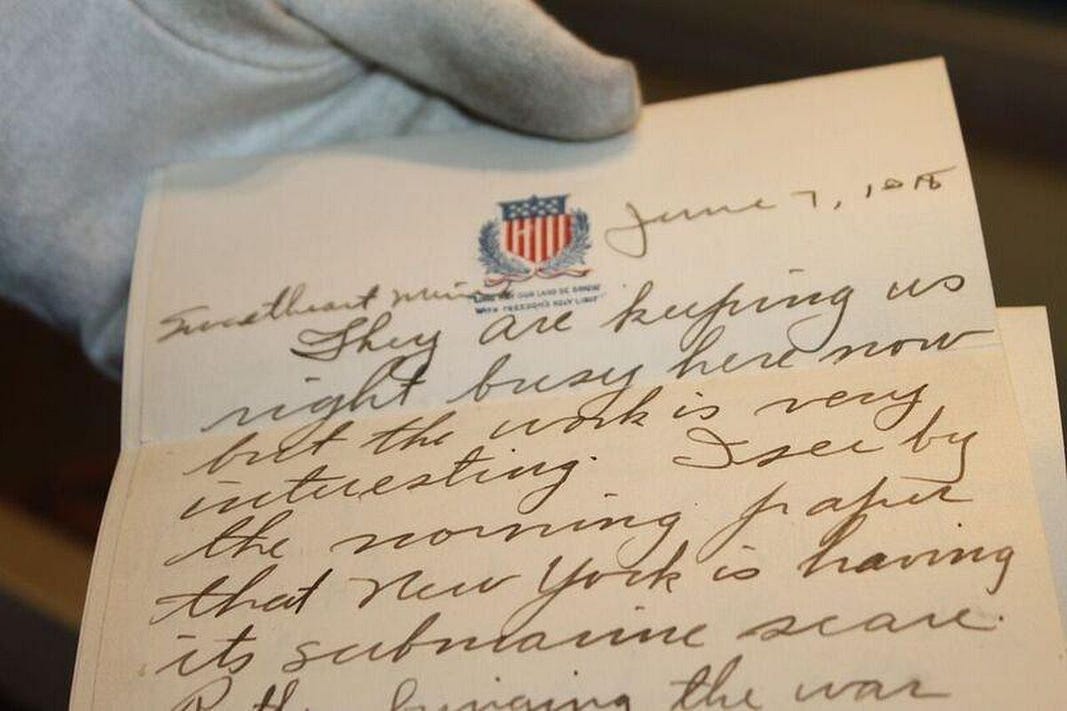 June 7, 1918
LONG MAY OUR LAND BE BRIGHT
WITH FREEDOM'S HOLY LIGHT
Sweetheart Mine
They are keeping us
right busy here now
but the work is very
interesting. I see by
the morning paper
that New York is having
its submarine scare.
bringing the war